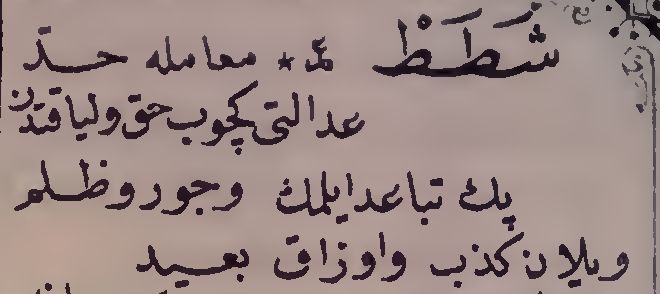 شَطَطْ ع * معامله حد
عدالتی کچوب حق ولیاقتدن
پك تباعد ایلمك وجور وظلم
ویلان کذب واوزاق بعید